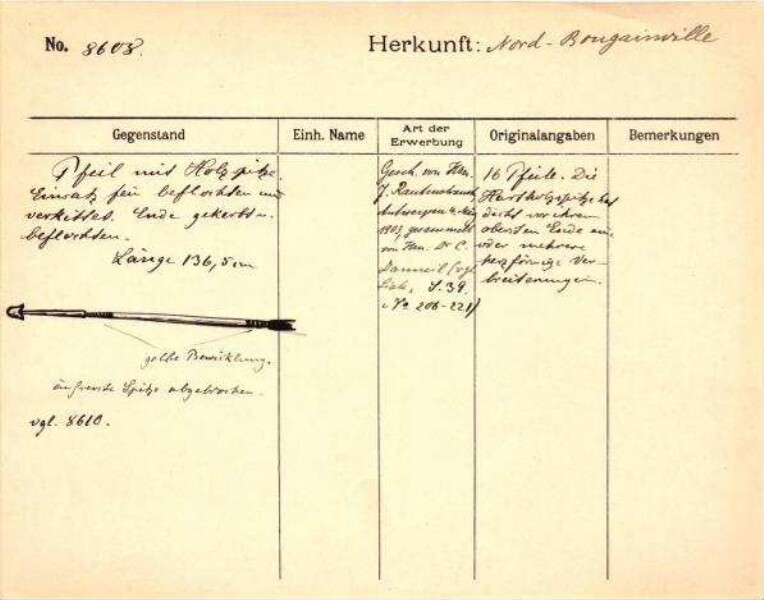 No. 8608.
Herkunft: Nord-Bougainville
Gegenstand
Einh. Name
Art der
Erwerbung
Originalangaben
Bemerkungen
Pfeil mit Holzspitze.
Einsatz fein beflochten und
verkittet. Ende gekerbt u.
beflochten.
Länge 136,5 cm
gelbe Bewicklung.
äusserste Spitze abgebrochen.
vgl. 8610.
Gesch. von Hrn.
J.
Antwerpen
1903, gesammelt
von Hrn. Dr C.
Danneil (vgl.
Liste, S. 39.
No 206-221)
16 Pfeile. Die
Hartholzspitze hat
dicht vor ihrem
obersten Ende eine
oder mehrere
herzförmige Ver-
breiterungen.